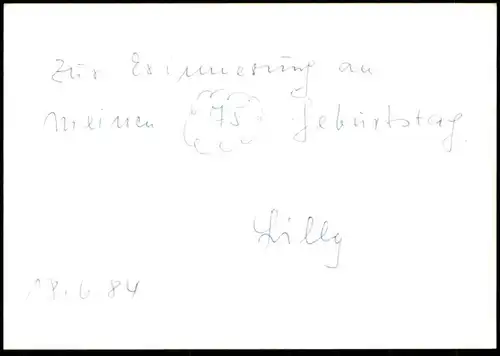 Zur Erinnerung an
meinen 75 Geburtstag.
Lilly
18.6.84